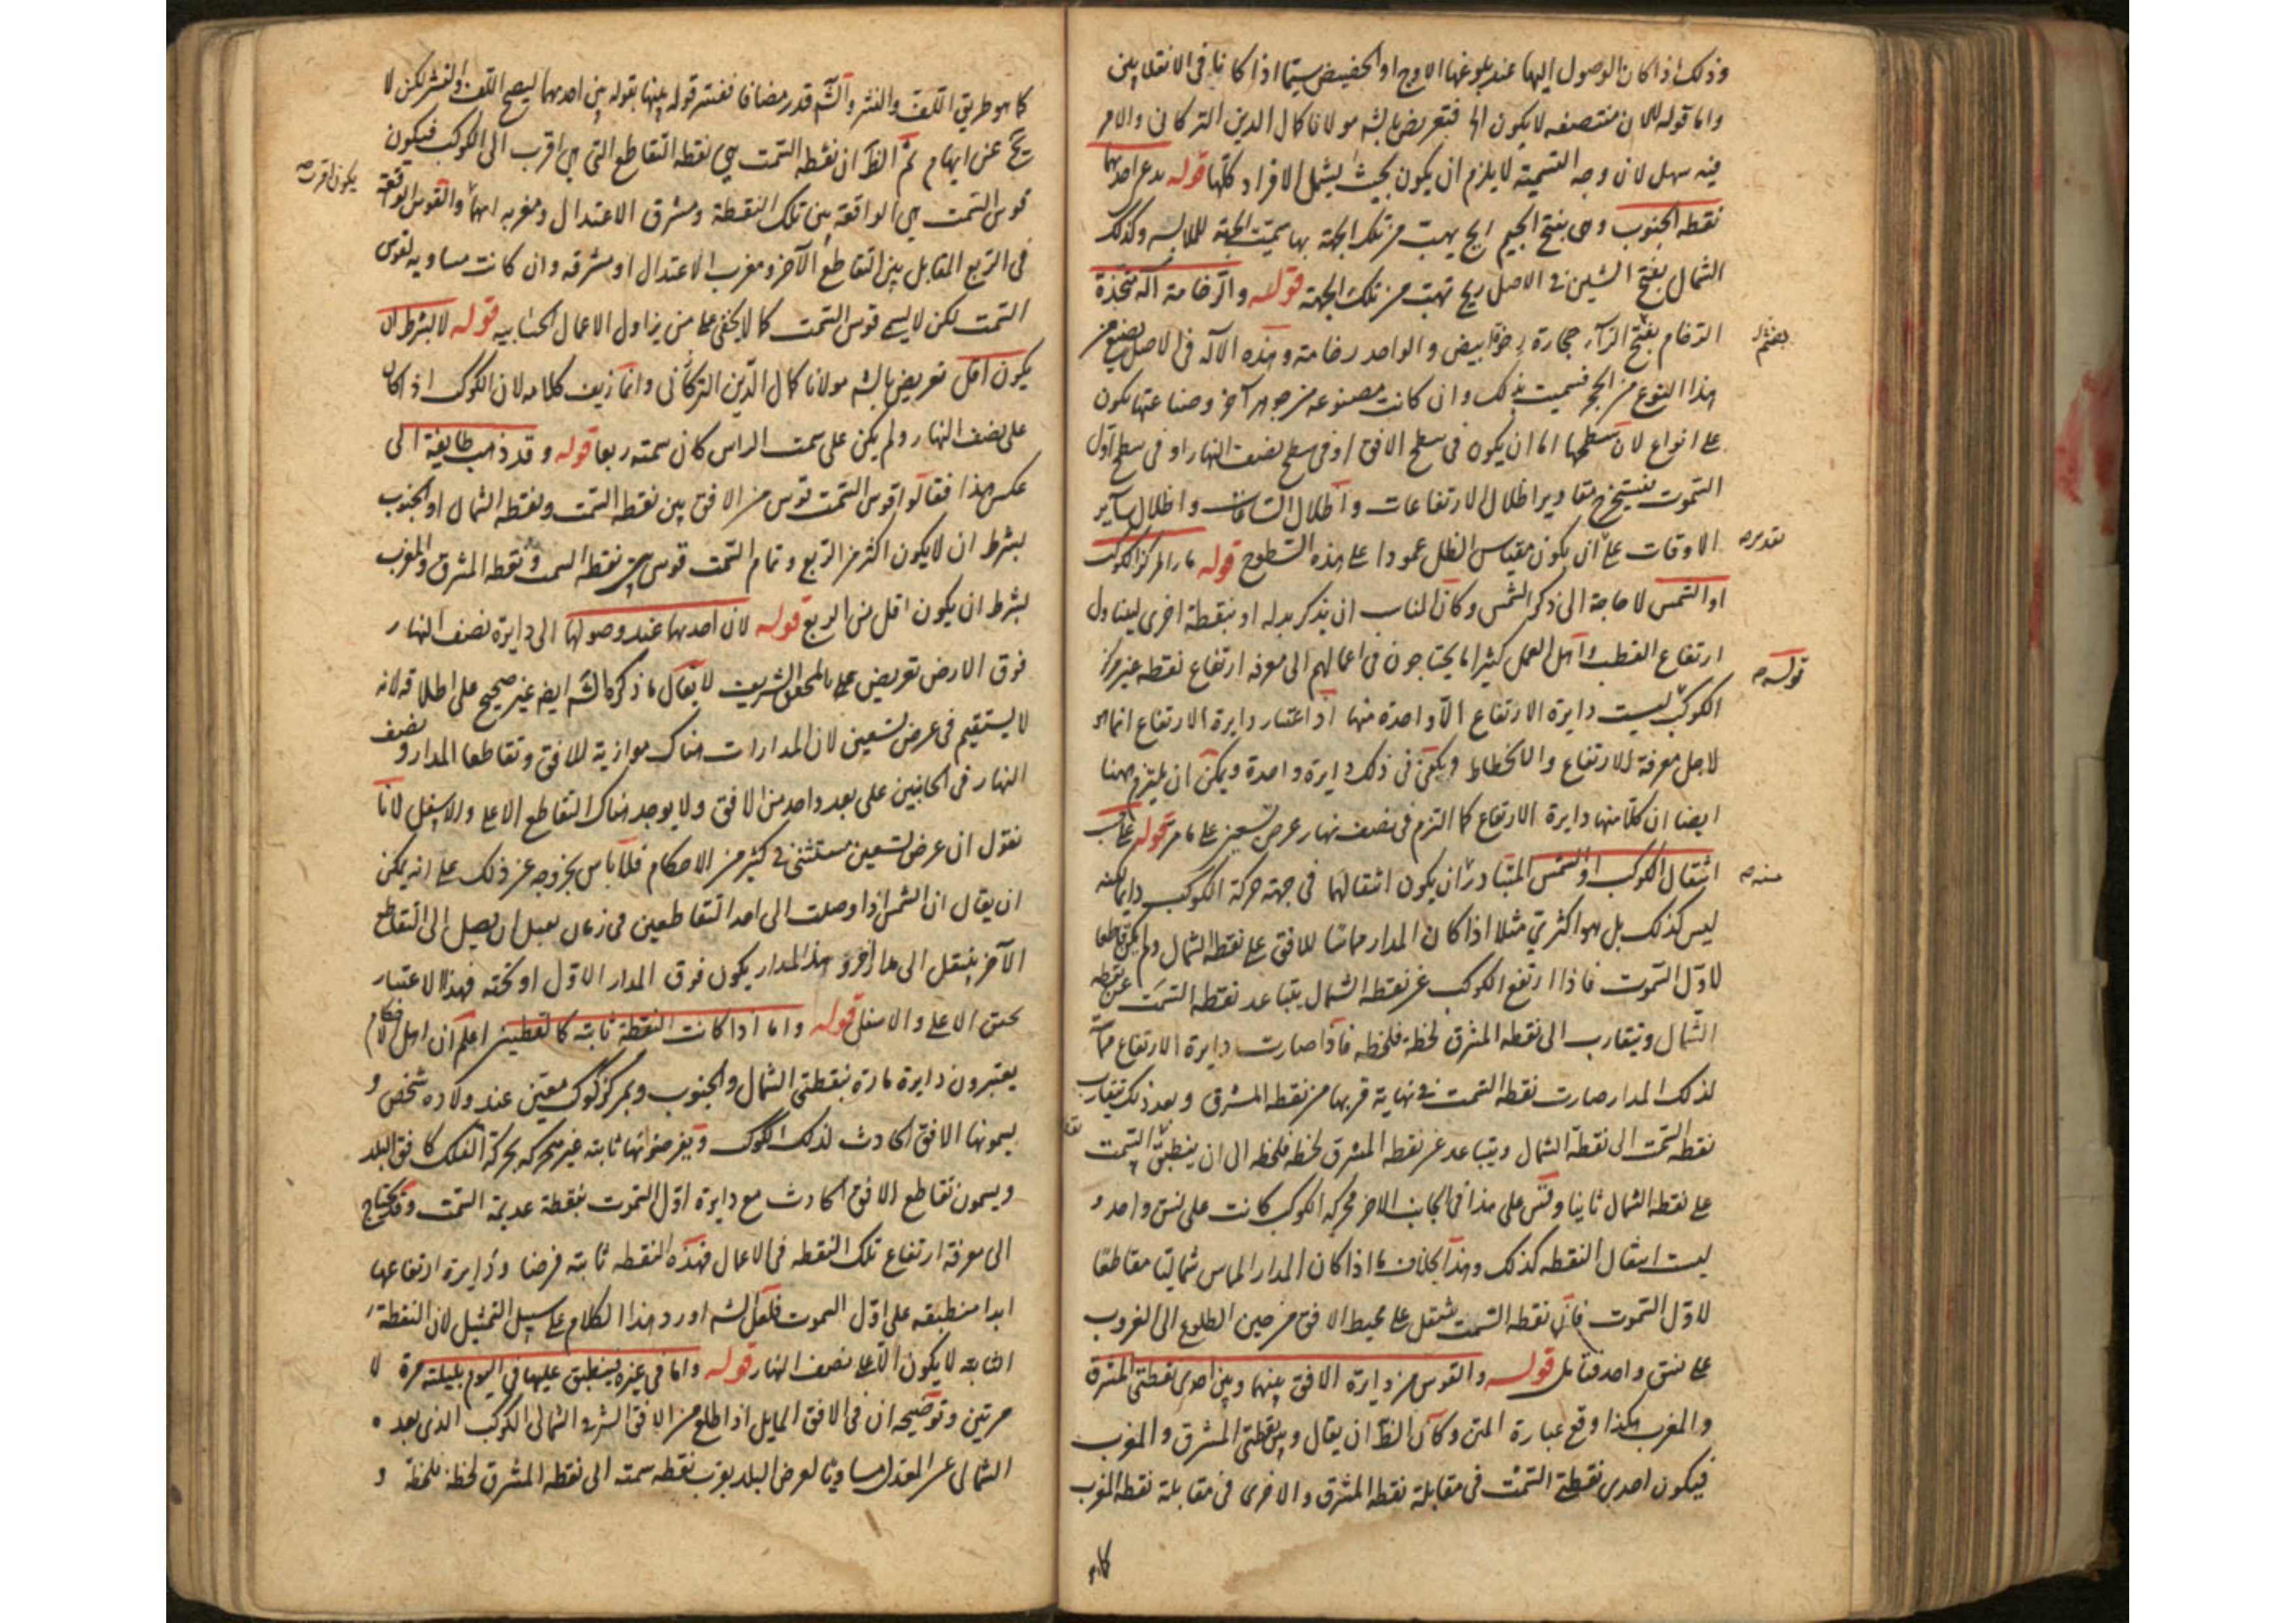 وذلك اذا كان الوصول اليها عند بلوغها الاوج او الحضيض سيما اذا كانا فى الانقلابين
واما قوله لان منتصفه لا يكون الخ فتعريض بالشه مولانا كمال الدين التركمانى والامر
فيه سهل لان وجه التسمية لا يلزم ان يكون بحيث يشمل الافراد كلها قوله يدعى احديهما
نقطه الجنوب وهى بفتح الجيم ريح يهبّ من تلك الجهة بها سميت الجهة للملابسه وكذلك
الشمال بفتح الشين فى الاصل ريح تهبّ من تلك الجهة قوله والرخامة آله متخذة
الرخام بفتح الرآء حجارة رخوة ابيض والواحد رخامة وهذه الآله فى الاصل يصنع من
بضم
هذا النوع من الحجر فسميت بذلك وان كانت مصنوعه من جوهر آخر وصناعتها يكون
على انواع لان سطحها اما ان يكون فى سطح الافق او فى سطح نصف النهار او فى سطح اول
السموت فيستخرج مقادير اظلال الارتفاعات واظلال الساعات واظلال ساير
الاوقات على ان يكون مقياس الظل عمودا على هذه السطوح قوله مار المركز الكوكب
تقديره
او الشمس لا حاجة الى ذكر الشمس وكان المناسب ان يذكر بدله او بنقطة اخرى ليتناول
ارتفاع القطب واهل العمل كثيرا ما يحتاجون فى اعمالهم الى معرفه ارتفاع نقطه غير مركز
قوله
الكوكب ليست دايرة الارتفاع الّا واحدة منها اذ اعتبار دايرة الارتفاع انما هو
لاجل معرفة الارتفاع والانحطاط ويكفى فى ذلك دايرة واحدة ويمكن ان يلتزم ههنا
ايضا ان كلا منها دايرة الارتفاع كما التزم فى نصف نهار عرض تسعين على ما مر قوله على حسب
انتقال الكوكب او الشمس المتبادر ان يكون انتقالهما فى جهة حركة الكوكب دايما لكنه
منه
ليس كذلك بل هو اكثرى مثلا اذا كان المدار مماسّا للافق على نقطه الشمال ولم يكن قاطعا
لاول السموت فاذا ارتفع الكوكب عن نقطه الشمال يتباعد نقطه السمت عن نقطه
الشمال ويتقارب الى نقطه المشرق لحظة فلحظه فاذا صارت دايرة الارتفاع مماسّه
لذلك المدار صارت نقطه السمت فى نهاية قربها من نقطه المشرق وبعد ذلك يتقارب
نقطه السمت الى نقطة الشمال ويتباعد عن نقطه المشرق لحظه فلحظه الى ان ينطبق السمت
على نقطه الشمال ثانيا وقس على هذا فى الجانب الاخر فحركه الكوكب كانت على نسق واحد و
ليست انتقال النقطه كذلك وهذا بخلاف ما اذا كان المدار المماس شماليا مقاطعا
لاول السموت فان نقطه السمت تنتقل على محيط الافق من حين الطلوع الى الغروب
على نسق واحد فتامل قوله والقوس من دايرة الافق بينهما وبين احدى نقطتى المشرق
والمغرب هكذا وقع عبارة المتن وكان الظ ان يقال وبين نقطتى المشرق والمغرب
فيكون احدى نقطتى السمت فى مقابلة نقطه المشرق والاخرى فى مقابلة نقطه المغرب
كما هو
كما هو طريق اللف والنشر والشه قدر مضافا ففسر قوله بينها بقوله بين احديهما ليصح اللف والنشر لكن لا
يخ عن ابهام ثم الظ ان نقطه السمت هى نقطه التقاطع التى هى اقرب الى الكوكب فيكون
قوس السمت هى الواقعة بين تلك النقطة ومشرق الاعتدال ومغربه ايهما والقوس الواقعة
يكون اقرب
فى الربع المقابل بين التقاطع الآخر ومغرب الاعتدال او مشرقه وان كانت مساويه لقوس
السمت لكن لا يسمى قوس السمت كما لا يخفى على من يزاول الاعمال الحسابيه قوله لا بشرط ان
يكون اقل تعريض بالشه مولانا كمال الدين التركمانى وانما زيف كلامه لان الكوكب اذا كان
على نصف النهار ولم يكن على سمت الراس كان سمته ربعا قوله وقد ذهب طايفة الى
عكس هذا فقالوا قوس السمت قوس من الافق بين نقطه السمت ونقطه الشمال او الجنوب
بشرط ان لا يكون اكثر من الربع وتمام السمت قوس بين نقطه السمت ونقطه المشرق والمغرب
بشرط ان يكون اقل من الربع قوله لان احديهما عند وصولها الى دايرة نصف النهار
فوق الارض تعريض على المحقق الشريف لا يقال ما ذكره الشه ايضا غير صحيح على اطلاقه لانه
لا يستقيم فى عرض تسعين لان المدارات هناك موازية للافق وتقاطعا المدار ونصف
النهار فى الجانبين على بعد واحد من الافق ولا يوجد هناك التقاطع الاعلى والاسفل لانا
نقول ان عرض تسعين مستثنى فى كثير من الاحكام فلا باس بخروجه عن ذلك على انه يمكن
ان يقال ان الشمس اذا وصلت الى احد التقاطعين فى زمان فقبل ان يصل الى التقاطع
الآخر ينتقل الى مدار آخر وهذا المدار يكون فوق المدار الاول او تحته فبهذا الاعتبار
تحقق الاعلى والاسفل قوله واما اذا كانت النقطة ثابته كالقطبين اعلم ان اهل الاحكام
يعتبرون دايرة مارة بنقطتى الشمال والجنوب وبمركز كوكب معين عند ولادة شخص و
يسمونها الافق الحادث لذلك الكوكب ويفرضونها ثابته غير متحركه بحركة الفلك كافق البلد
ويسمون تقاطع الافق الحادث مع دايرة اول السموت بنقطة عديمة السمت وقد يحتاج
الى معرفة ارتفاع تلك النقطه فى الاعمال فهذه النقطه ثابته فرضا ودايرة ارتفاعها
ابدا منطبقه على اول السموت فلعل الشه اورد هذا الكلام على سبيل التمثيل لان النقطة
الثابته لا يكون الا على نصف النهار قوله واما فى غيره ينطبق عليها فى اليوم بليلته مرة لا
مرتين وتوضيحه ان فى الافق المايل اذا طلع من الافق الشرقى الشمالى الكوكب الذى بعده
الشمالى عن المعدل مساويا لعرض البلد يقرب نقطه سمته الى نقطه المشرق لحظة فلحظة و